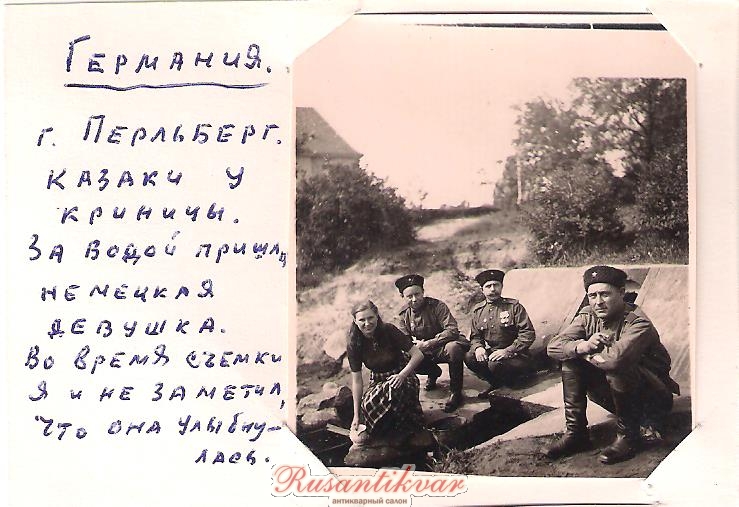 Германия.
г. Перльберг.
казаки у
криницы.
За водой пришла
немецкая
девушка.
Во время съемки
я и не заметил,
что она улыбну-
лась.
Rusantikvar
антикварный салон